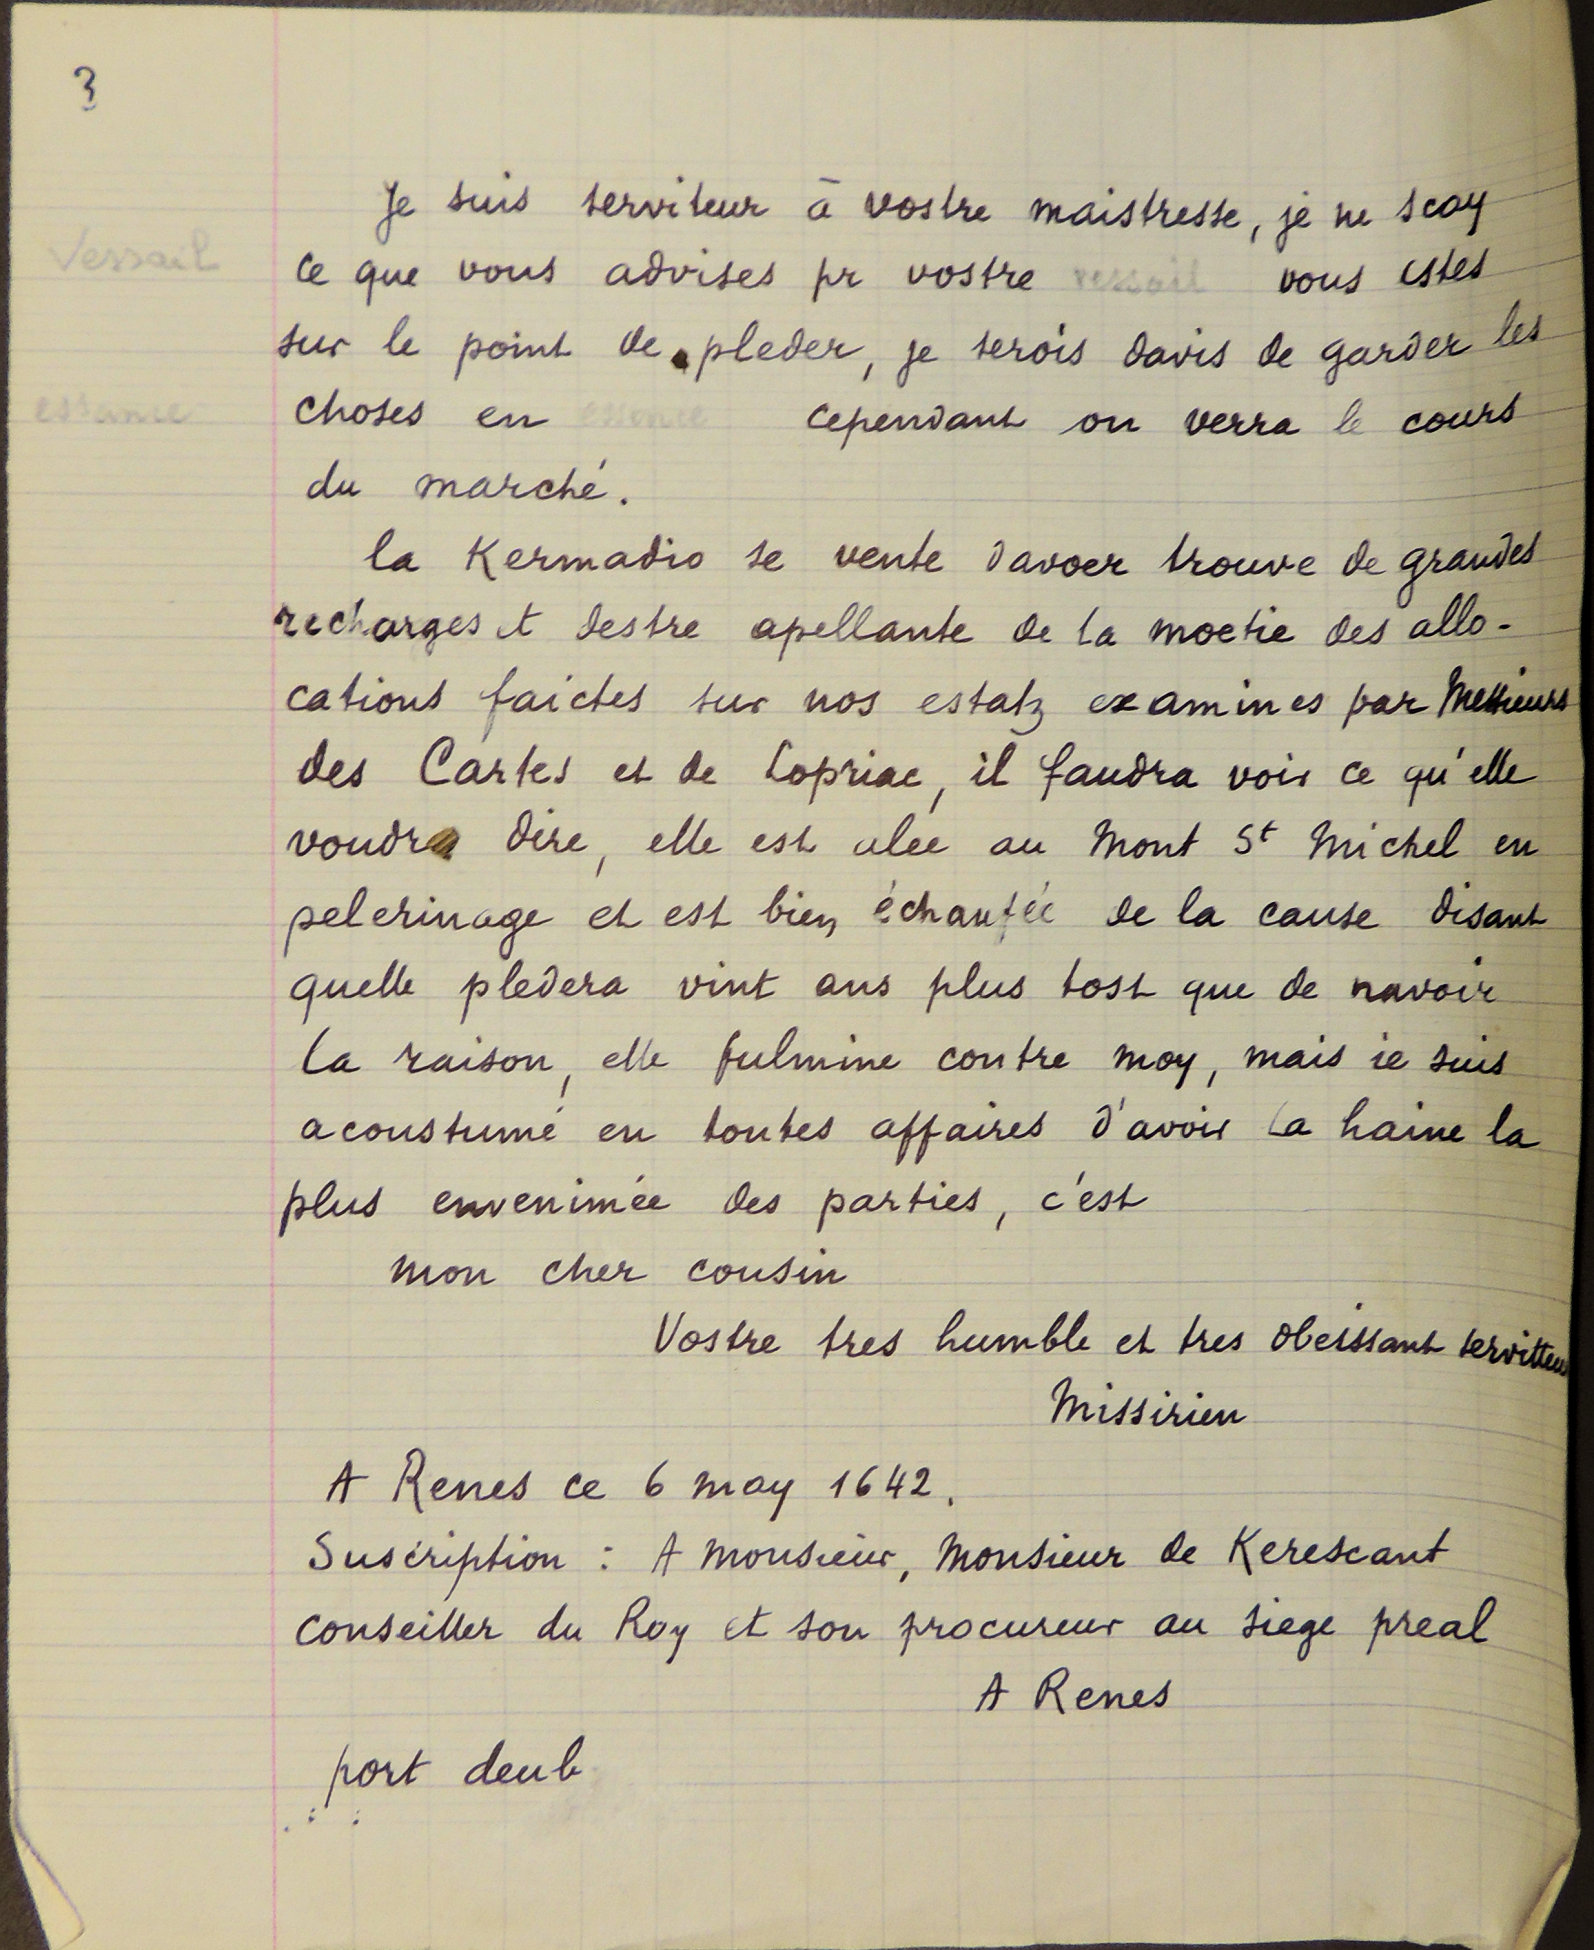 3
Je suis serviteur à vostre maistresse, je ne scay
Vessail
ce que vous advises pr vostre vessail vous estes
sur le point de pleder, je serois davis de garder les
essance
choses en essence cependant on verra le cours
du marché.
la Kermadio se vente davoer trouve de grandes
recharges et destre apellante de la moetie des allo-
cations faictes sur nos estatz examines par Messieurs
des Cartes et de Lopriac, il faudra voir ce qu'elle
voudra dire, elle est alee au Mont St Michel en
pelerinage et est bien échaufée de la cause disant
quelle pledera vint ans plus tost que de navoir
la raison, elle fulmine contre moy, mais ie suis
acoustumé en toutes affaires d'avoir la haine la
plus envenimée des parties, c'est
mon cher cousin
Vostre tres humble et tres obeissant servitteur
Missirien
A Renes ce 6 may 1642.
Suscription : A monsieur, Monsieur de Kerescant
conseiller du Roy et son procureur au siege preal
A Renes
port deub